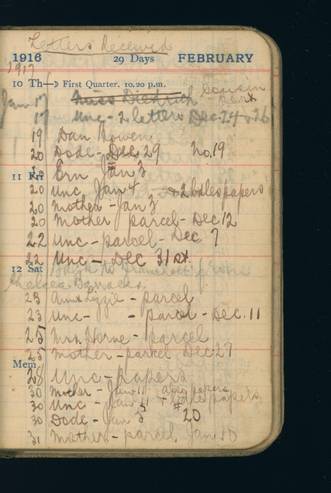 Letters Received
1916 29 Days FEBRUARY
1917
10 Th First Quarter. 10.20 p.m.
Jan 17 Miss Diedrich
17 Unc - 2 letters Dec 24 & 26
19 Dan Rowen
20 Dode - Dec 29 No. 19
Ern Jan 3
11 Fri
20 Unc Jan 4 & 2 bales papers
20 Mother - Jan 3
20 Mother parcel - Dec 12
22 Unc - parcel - Dec 7
22 Unc - Dec 31st
12 Sat
Chelsea Barracks
23 Aunt Lizzie - parcel
23 Unc - - parcel - Dec. 11
25 Mrs. Horne - parcel
25 Mother - parcel Dec 27
Mem.
28 Unc - papers
30 Mother - Jan 11 papers
30 Unc - Jan papers
30 Dode - Jan 3 # 20
31 Mother - parcel Jan 10